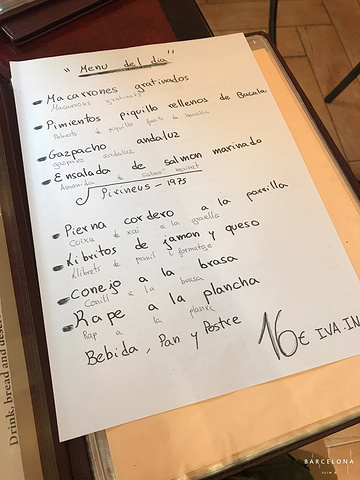 "Menu del dia"
Macarrones gratinados
Macarrons gratinats
Pimientos piquillo rellenos de Bacalao
Pebrots de piquillo farcits de bacallà
Gazpacho andaluz
gazpatxo andaluz
Ensalada de salmon marinado
Amanida de salmó marinat
Pirineus - 1975
Pierna cordero a la parrilla
Cuixa de xai a la graella
Llibritos de jamon y queso
Llibrets de pernil i formatge
Conejo a la brasa
Conill a la brasa
Rape a la plancha
Rap a la planxa
Bebida, Pan y Postre
16€ IVA.IN
Drink, bread and
BARCELONA